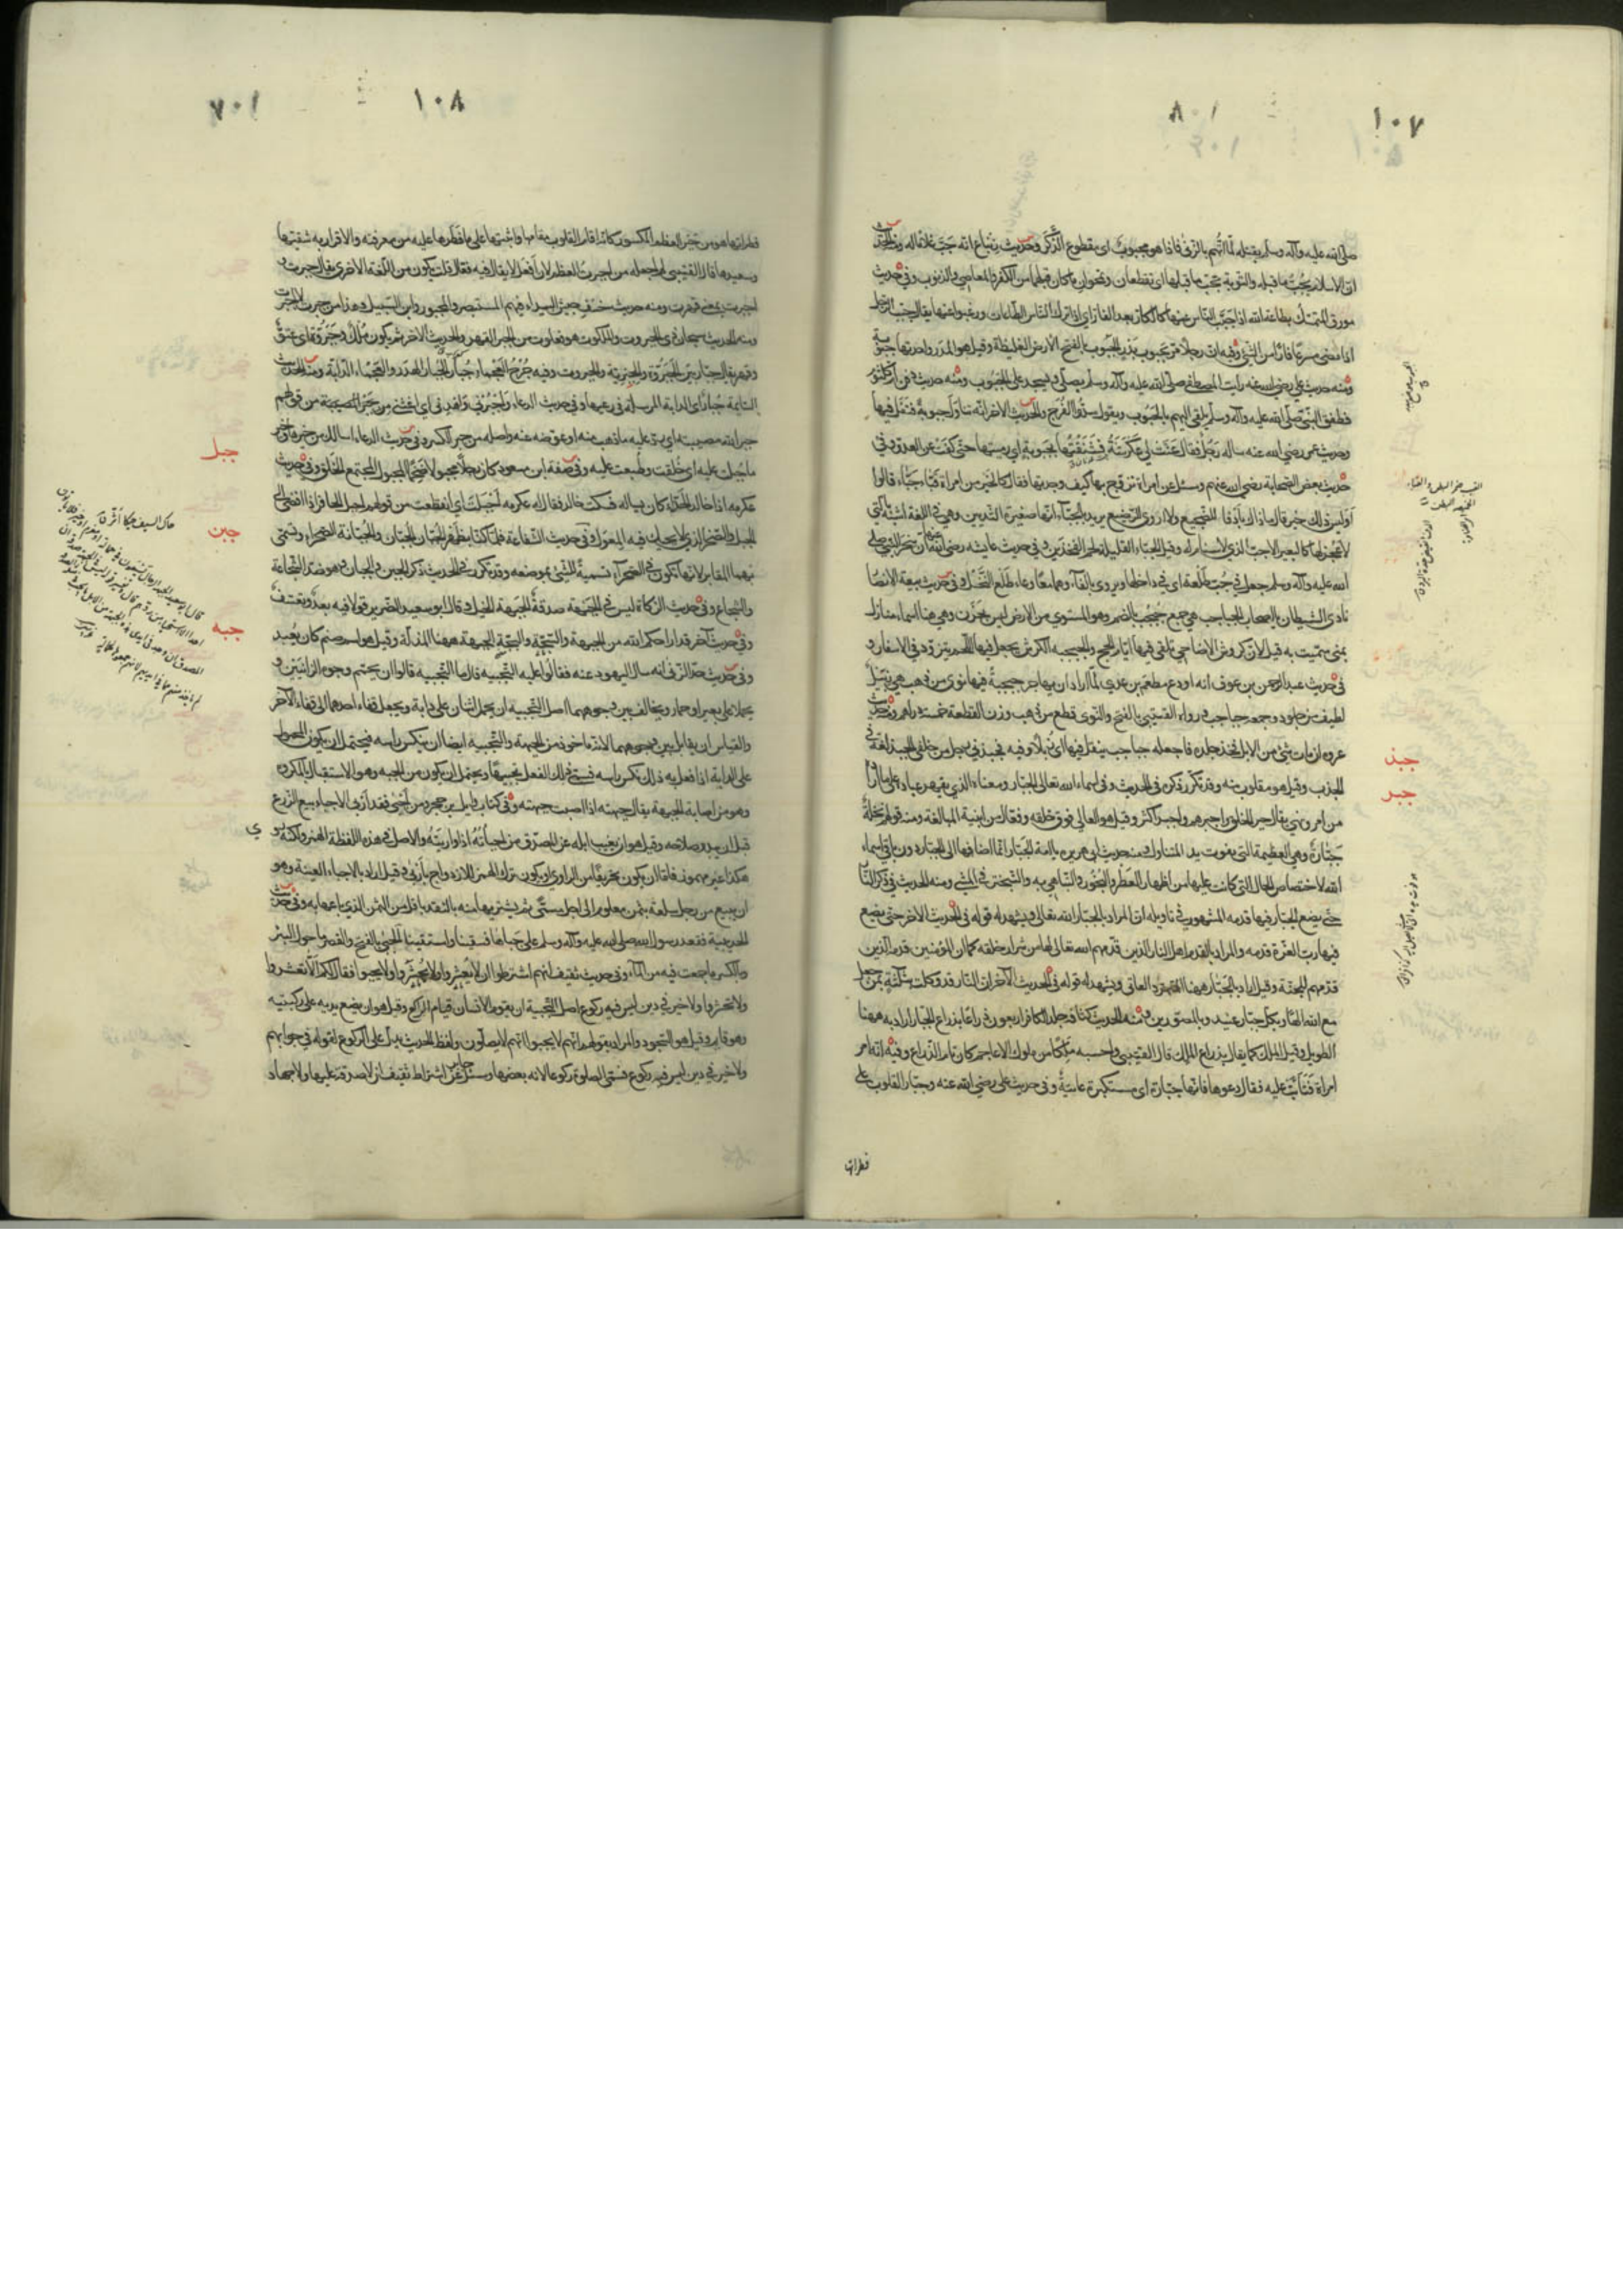 ١٠٧
٨٠١
صلى الله عليه وآله وسلم بقتله لما اتهم بالزنى فاذا هو مجبوب اى مقطوع الذكر وحديث زنباع انه جب غلاما له ومنه الحديث
ان الاسلام يجب ما قبله والتوبة تجب ما قبلها اى تقطعان وتمحوان ما كان قبلهما من الكفر والمعاصى والذنوب وفى حديث
مورق المتمسك بطاعة الله اذا جبب الناس عنها كالكار بعد الفار اى اذا ترك الناس الطاعات ورغبوا عنها يقال جبب الرجل
اذا مضى مسرعا فارا من الشئ وفيه ان رجلا مر بجبوب بدر الجبوب بالفتح الارض الغليظة وقيل هو المدر واحدتها جبوبة
ومنه حديث على رضى الله عنه رايت المصطفى صلى الله عليه وآله وسلم يصلى ويسجد على الجبوب ومنه حديث دفن ام كلثوم
فطفق النبى صلى الله عليه وآله وسلم يلقى اليهم بالجبوب ويقول سدوا الفرج والحديث الآخر انه تناول جبوبة فتفل فيها
وحديث عمر رضى الله عنه ساله رجل فقال عنت لى عكرشة فشنقتها بجبوبة اى رميتها حتى كفت عن العدو وفى
حديث بعض الصحابة رضى الله عنهم وسئل عن امراة تزوج بها كيف وجدتها فقال كالخير من امراة قباء جباء قالوا
اوليس ذلك خيرا قال ما ذاك بادفا للضجيع ولا اروى للرضيع يريد بالجباء انها صغيرة الثديين وهى فى اللغة اشبه بالتى
لا عجز لها كالبعير الاجب الذى لا سنام له وقيل الجباء القليلة لحم الفخذين وفى حديث عائشة رضى الله عنها ان سحر النبى صلى
الله عليه وآله وسلم جعل فى جب طلعة اى فى داخلها ويروى بالفاء وهما معا وعاء طلع النخل وفى حديث بيعة الانصار
نادى الشيطان يا اصحاب الجباجب هى جمع جبجب بالضم وهو المستوى من الارض ليس بحزن وهى هنا اسماء منازل
بمنى سميت به قيل لان كروش الاضاحى تلقى فيها ايام الحج والجبجبة الكرش يجعل فيها اللحم يتزود فى الاسفار و
فى حديث عبد الرحمن بن عوف انه اودع مطعم بن عدى لما اراد ان يهاجر جبجبة فيها نوى من ذهب هى زبيل
لطيف من جلود وجمعه جباجب ورواه القتيبى بالفتح والنوى قطع من ذهب وزن القطعة خمسة دراهم ومنه حديث
عروة ان مات شئ من الابل فخذ جلده فاجعله جباجب ينقل فيها اى زبلا وفيه فجبذنى رجل من خلفى الجبذ لغة فى
الجذب وقيل هو مقلوب منه وقد تكرر ذكره فى الحديث وفى اسماء الله تعالى الجبار ومعناه الذى يقهر عباده على ما اراد
من امر ونهى يقال جبر الخلق واجبرهم واجبر اكثر وقيل هو العالى فوق خلقه وفعال من ابنية المبالغة ومنه قولهم نخلة
جبارة وهى العظيمة التى تفوت يد المتناول ومنه حديث ابى هريرة يا امة الجبار انما اضافها الى الجبار دون باقى اسماء
الله لاختصاص الحال التى كانت عليها من اظهار العطر والبخور والتباهى به والتبختر فى المشى ومنه الحديث فى ذكر النار
حتى يضع الجبار فيها قدمه المشهور فى تاويله ان المراد بالجبار الله تعالى ويشهد له قوله فى الحديث الآخر حتى يضع
فيها رب العزة قدمه والمراد بالقدم اهل النار الذين قدمهم الله تعالى لها من شرار خلقه كما ان المؤمنين قدمه الذين
قدمهم للجنة وقيل اراد بالجبار ههنا المتمرد العاتى ويشهد له قوله فى الحديث الآخر ان النار قد وكلت بثلاثة بمن جعل
مع الله الها وبكل جبار عنيد وبالمصورين ومنه الحديث كثافة جلد الكافر اربعون ذراعا بذراع الجبار اراد به ههنا
الطويل وقيل الملك كما يقال بذراع الملك قال القتيبى واحسبه ملكا من ملوك الاعاجم كان تام الذراع وفيه انه امر
امراة فتابت عليه فقال دعوها فانها جبارة اى مستكبرة عاتية وفى حديث على رضى الله عنه وجبار القلوب على
جبذ
جبر
فطراتها
١٠٨
٧٠١
فطراتها هو من جبر العظم المكسور كانه اقام القلوب مقامها واثبتها على ما فطرها عليه من معرفته والاقرار به شقيها
وسعيدها قال القتيبى لم اجعله من اجبرت العظم لان افعل لا يقال فيه فعال قلت يكون من اللغة الاخرى يقال جبرت و
اجبرت بمعنى قهرت ومنه حديث خسف جيش البيداء فيهم المستبصر والمجبور وابن السبيل وهذا من جبرت لا اجبرت
ومنه الحديث سبحان ذى الجبروت والملكوت هو فعلوت من الجبر القهر والحديث الآخر ثم يكون ملك وجبروة اى عتو
وقهر يقال جبار بين الجبروة والجبرية والجبروت وفيه جرح العجماء جبار الجبار الهدر والعجماء الدابة ومنه الحديث
السائمة جبار اى الدابة المرسلة فى رعيها وفى حديث الدعاء واجبرنى واهدنى اى اغننى من جبر المصيبة من قولهم
جبر الله مصيبته اى رد عليه ما ذهب منه او عوضه عنه واصله من جبر الكسر وفى حديث الدعاء اسالك من خيرها وخير
ما جبلت عليه اى خلقت وطبعت عليه وفى صفة ابن مسعود كان رجلا مجبولا ضخما المجبول المجتمع الخلق وفى حديث
عكرمة ان خالدا الحذاء كان يساله فسكت خالد فقال له عكرمة اجبلت اى انقطعت من قولهم اجبل الحافر اذا افضى الى
الجبل والصخر الذى لا يحيك فيه المعول وفى حديث الشفاعة فلما كنا بظهر الجبان الجبان والجبانة الصحراء وتسمى
بهما المقابر لانها تكون فى الصحراء تسمية للشئ بموضعه وقد تكرر فى الحديث ذكر الجبن والجبان هو ضد الشجاعة
والشجاع وفى حديث الزكاة ليس فى الجبهة صدقة الجبهة الخيل وقال ابو سعيد الضرير قولا فيه بعد وتعسف
وفى حديث آخر قد اراحكم الله من الجبهة والسجة والبجة الجبهة ههنا المذلة وقيل هو اسم صنم كان يعبد
وفى حديث حد الزنى انه سال اليهود عنه فقالوا عليه التجبيه قال ما التجبيه قالوا ان يحمم وجوه الزانيين و
يحملا على بعير او حمار ويخالف بين وجوههما اصل التجبيه ان يحمل اثنان على دابة ويجعل قفاء احدهما الى قفاء الآخر
والقياس ان يقابل بين وجوههما لانه ماخوذ من الجبهة والتجبيه ايضا ان ينكس راسه فيحتمل ان يكون المحمول
على الدابة اذا فعل به ذلك نكس راسه فسمى ذلك الفعل تجبيها ويحتمل ان يكون من الجبه وهو الاستقبال بالمكروه
وهو من اصابة الجبهة يقال جبهته اذا اصبت جبهته وفى كتاب وايل بن حجر ومن اجبى فقد اربى الاجباء بيع الزرع
قبل ان يبدو صلاحه وقيل هو ان يغيب ابله عن المصدق من اجباته اذا واريته والاصل فى هذه اللفظة الهمز ولكنه روى
هكذا غير مهموز فاما ان يكون تحريفا من الراوى او يكون ترك الهمز للازدواج باربى وقيل اراد بالاجباء العينة وهو
ان يبيع من رجل سلعة بثمن معلوم الى اجل مسمى ثم يشتريها منه بالنقد باقل من الثمن الذى باعها به وفى حديث
الحديبية فقعد رسول الله صلى الله عليه وآله وسلم على جباها فسقينا واستقينا الجبى بالفتح والقصر ما حول البئر
وبالكسر ما جمعت فيه من الماء وفى حديث ثقيف انهم اشترطوا ان لا يعشروا ولا يحشروا ولا يجبوا فقال لكم الا تعشروا
ولا تحشروا ولا خير فى دين ليس فيه ركوع اصل التجبية ان يقوم الانسان قيام الراكع وقيل هو ان يضع يديه على ركبتيه
وهو قايم وقيل هو السجود والمراد بقولهم انهم لا يجبوا انهم لا يصلون ولفظ الحديث يدل على الركوع لقوله فى جوابهم
ولا خير فى دين ليس فيه ركوع فسمى الصلوة ركوعا لانه بعضها وسئل جابر عن اشتراط ثقيف ان لا صدقة عليها ولا جهاد
جبل
جبن
جبه